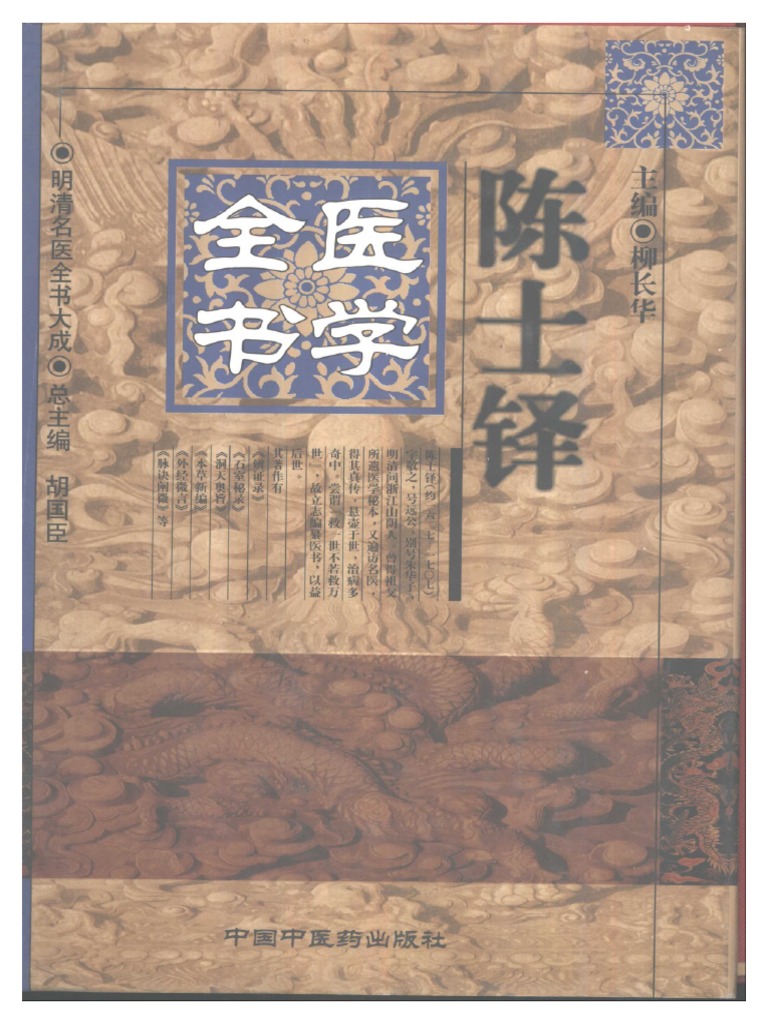 主编●柳长华
陈士铎
医学
全书
陈士铎(约一六二七~一七〇七)
字敬之,号远公,别号朱华子。
明清间浙江山阴人,曾得祖父
所遗医学秘本,又遍访名医,
得其真传,悬壶于世,治病多
奇中。尝谓“救一世不若救万
世”,故立志编纂医书,以益
后世。
其著作有
《辨证录》
《石室秘录》
《洞天奥旨》
《本草新编》
《外经微言》
《脉诀阐微》等
●明清名医全书大成●总主编 胡国臣
中国中医药出版社